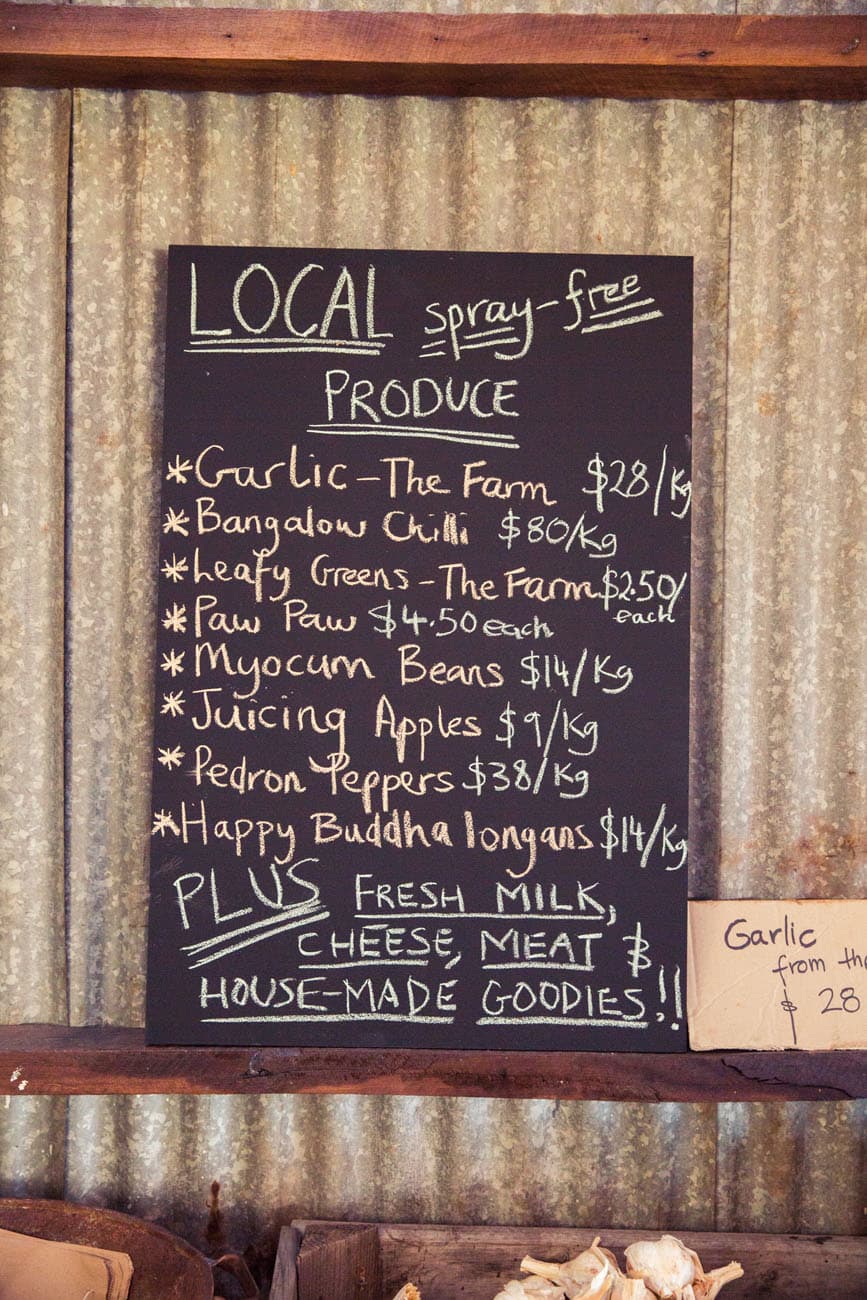 LOCAL spray-free
PRODUCE
*Garlic-The Farm $28/Kg
*Bangalow Chilli $80/Kg
*Leafy Greens-The Farm $2.50/
each
*Paw Paw $4.50 each
*Myocum Beans $14/Kg
*Juicing Apples $9/Kg
*Pedron Peppers $38/Kg
*Happy Buddha longans $14/Kg
PLUS FRESH MILK,
CHEESE, MEAT &
HOUSE-MADE GOODIES!!
Garlic
from the
$ 28